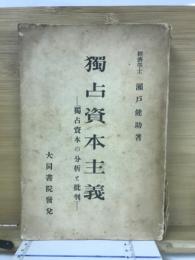 經濟學士 瀨戶健助著
獨占資本主義
—獨占資本の分析と批判—
大同書院發兌